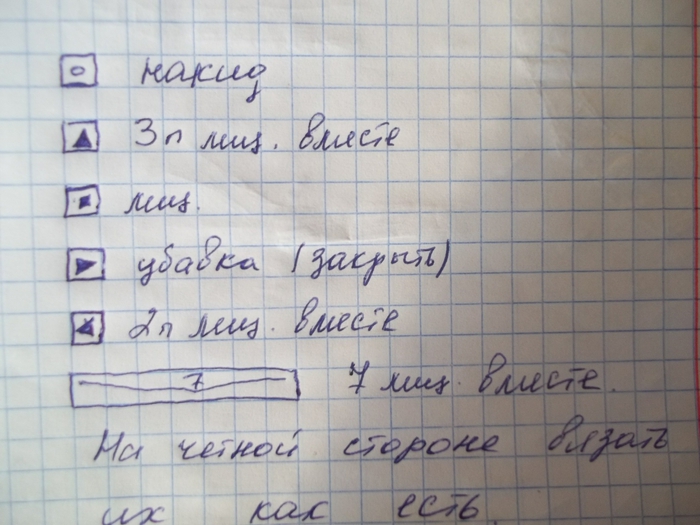 накид
3п лиц. вместе
лиц.
убавка (закрыть)
2п лиц. вместе
7 7 лиц. вместе.
На четной стороне вязать
их как есть.